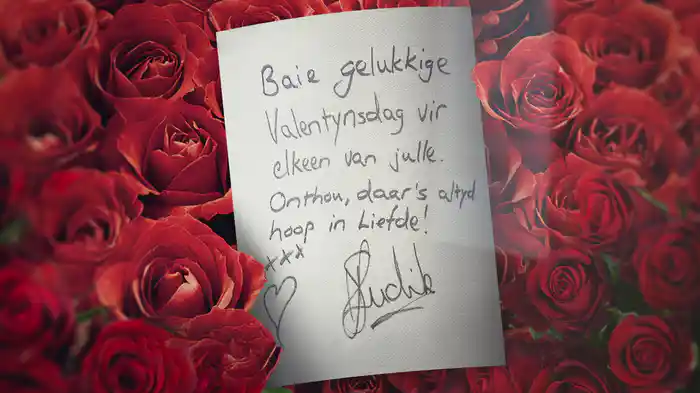 Baie gelukkige
Valentynsdag vir
elkeen van julle.
Onthou, daar's altyd
hoop in Liefde!
xxx